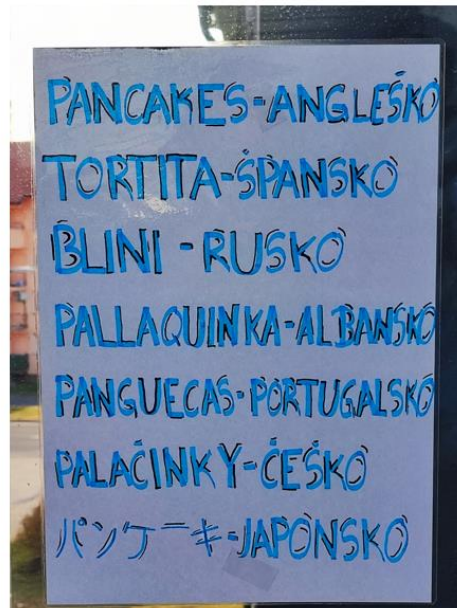 PANCAKES-ANGLEŠKO
TORTITA-ŠPANSKO
BLINI-RUSKO
PALLAQUINKA-ALBANSKO
PANGUECAS-PORTUGALSKO
PALAČINKY-ČEŠKO
パンケーキ-JAPONSKO